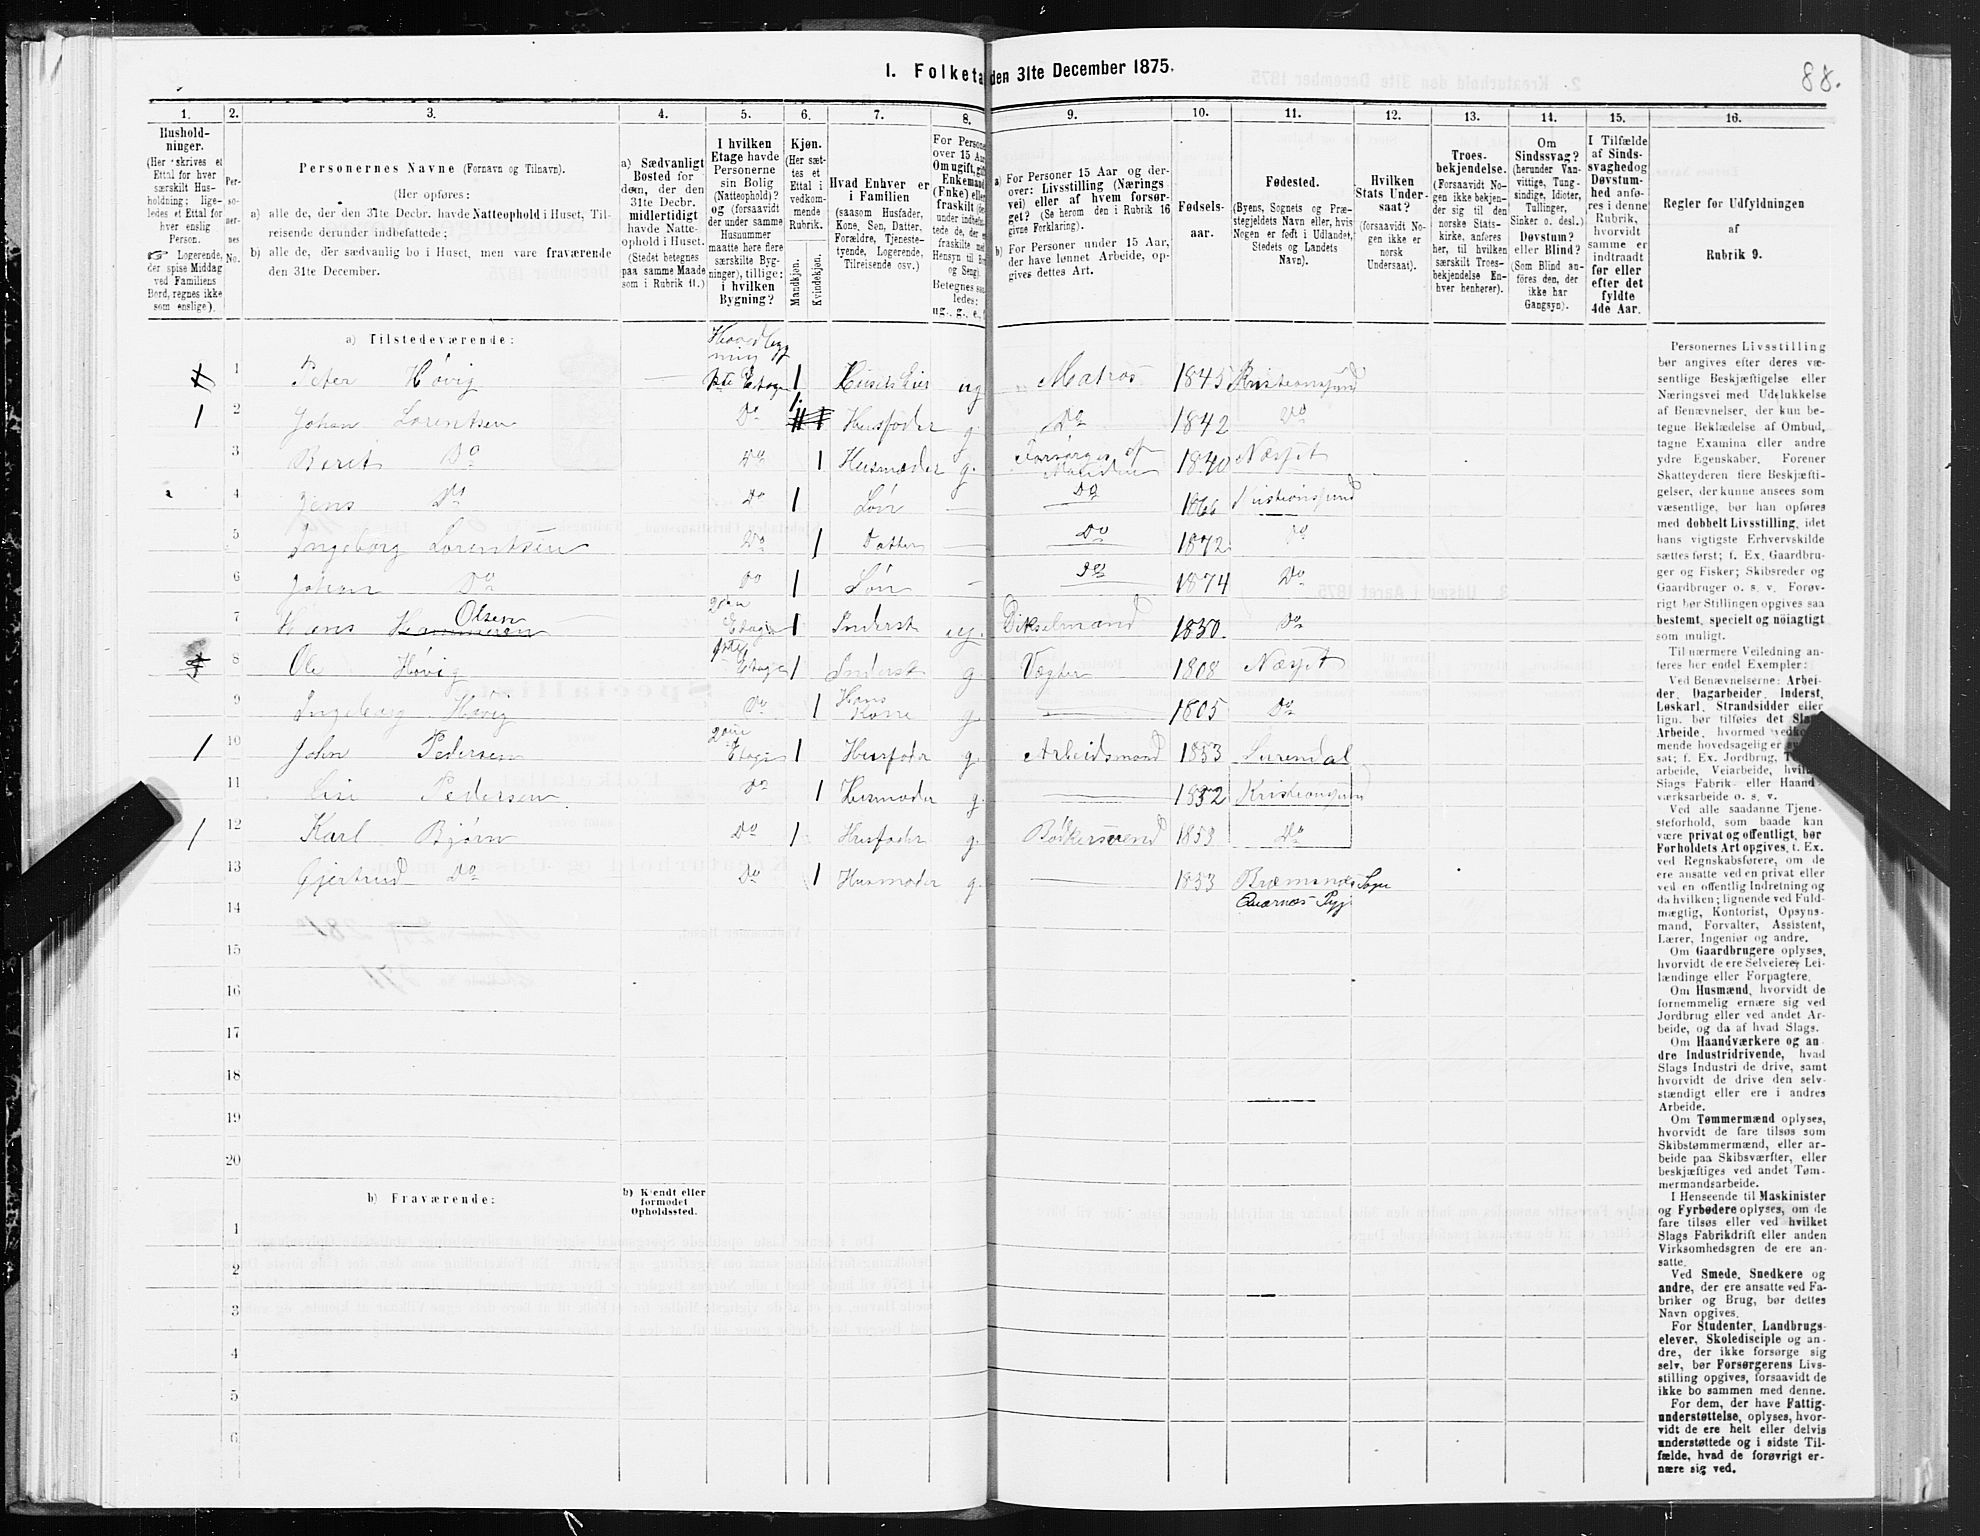 I. Folketa den 31te December 1875.
88.
1. 2. 3. 4. 5. 6. 7. 8. 9. 10. 11. 12. 13. 14. 15. 16.
Hushold-
ninger.
(Her skrives et
Ettal for hver
særskilt Hus-
holdning; lige-
ledes et Ettal for
hver enslig
Person.
☞ Logerende,
der spise Middag
ved Familiens
Bord, regnes ikke
som enslige).
Per-
so-
ner-
nes
No.
Personernes Navne (Fornavn og Tilnavn).
(Her opføres:
a) alle de, der den 31te Decbr. havde Natteophold i Huset, Til-
reisende derunder indbefattede;
b) alle de, der sædvanlig bo i Huset, men vare fraværende
den 31te December.
a) Sædvanligt
Bosted for
dem, der den
31te Decbr.
midlertidigt
havde Natte-
ophold i Huset.
(Stedet betegnes
paa samme Maade
som i Rubrik 11.)
I hvilken
Etage havde
Personerne
sin Bolig
(Natteophold)?
og (forsaavidt
der under samme
Husnummer
maatte høre flere
særskilte Byg-
ninger), tillige:
i hvilken
Bygning?
Kjøn.
(Her sæt-
tes et
Ettal i
vedkom-
mende
Rubrik.
Mandkjøn.
Kvindekjøn.
Hvad Enhver er
i Familien
(saasom Husfader,
Kone, Søn, Datter,
Forældre, Tjeneste-
tyende, Logerende,
Tilreisende osv.)
For Persone
over 15 Aar
Om ugift, gift
Enkemand
(Enke) eller
fraskilt
Betegnes saa
ledes:
ug., g., e.,
a) For Personer 15 Aar og der-
over: Livsstilling (Nærings
vei) eller af hvem forsør-
get? (Se herom den i Rubrik 16
givne Forklaring).
b) For Personer under 15 Aar,
der have lønnet Arbeide, op-
gives dettes Art.
Fødsels-
aar.
Fødested.
(Byens, Sognets og Præ-
stegjeldets Navn eller, hvis
Nogen er født i Udlandet,
Stedets og Landets
Navn).
Hvilken
Stats Under-
saat?
(forsaavidt No-
gen ikke er
norsk
Undersaat).
Troes-
bekjendelse.
(Forsaavidt No-
gen ikke bekjen-
der sig til den
norske Stats-
kirke, anføres
her, til hvilken
særskilt Troes-
bekjendelse En-
hver henhører).
Om
Sindssvag?
(herunder Van-
vittige, Tung-
sindige, Idioter,
Tullinger,
Sinker o. desl.)
Døvstum?
eller Blind?
(Som Blind an-
føres den, der
ikke har
Gangsyn).
I Tilfælde
af Sinds-
svaghedog
Døvstum-
hed anfø-
res i denne
Rubrik,
hvorvidt
samme er
indtraadt
før eller
efter det
fyldte
4de Aar.
Regler for Udfyldningen
af
Rubrik 9.
a) Tilstedeværende:
Hovedbyg
ning
1 Peter Høvig 1ste Etage 1 Husets Eier ug Matros 1845 Kristiansund
1 2 Johan Lorentsen Do 1 Husfader g Do 1842 Do
3 Berit Do Do 1 Husmoder g. Forsørges af Manden 1840 Næsset
4 Jens Do Do 1 Søn Do 1866 Kristiansund
5 Ingeborg Lorentsen Do 1 Datter Do 1872 Do
6 Johan Do Do 1 Søn Do 1874 Do
7 Hans Olsen 2den Etage 1 Inderst ug. Dikselmand 1830 Do
8 Ole Høvig 1ste Etage 1 Inderst g. Vægter 1808 Næsset
9 Ingeborg Høvig Do 1 Hans Kone g. 1805 Do
1 10 John Pedersen 2den Etage 1 Husfader g. Arbeidsmand 1853 Surendal
11 Lise Pedersen Do 1 Husmoder g. 1852 Kristiansund
1 12 Karl Bjørn Do 1 Husfader g. Bødkersvend 1853 Do
13 Gjertrud Do Do 1 Husmoder g. 1853 Bremsnæs Sogn
Quærnes Pgj
14
15
16
17
18
19
20
b) Fraværende:
b) Kjendt eller
formodet
Opholdssted.
1
2
3
4
5
6
Personernes Livsstilling
bør angives efter deres væ-
sentlige Beskjæftigelse eller
Næringsvei med Udelukkelse
af Benævnelser, der kun be-
tegne Beklædelse af Ombud,
tagne Examina eller andre
ydre Egenskaber. Forener
Skatteyderen flere Beskjæfti-
gelser, der kunne ansees som
væsentlige, bør han opføres
med dobbelt Livsstilling, idet
hans vigtigste Erhvervskilde
sættes først; f. Ex. Gaardbru-
ger og Fisker; Skibsreder og
Gaardbruger o. s. v. Forøv-
rigt bør Stillingen opgives saa
bestemt, specielt og nøiagtigt
som muligt.
Til nærmere Veiledning an-
føres her endel Exempler:
Ved Benævnelserne: Arbei-
der, Dagarbeider, Inderst,
Løskarl, Strandsidder eller
lign. bør tilføies det Slags
Arbeide, hvormed vedkom-
mende hovedsagelig er
sat; f. Ex. Jordbrug,
arbeide, Veiarbeide, hvilket
Slags Fabrik- eller Haand-
værksarbeide o. s. v.
Ved alle saadanne Tjene-
steforhold, som baade kan
være privat og offentligt, bør
Forholdets Art opgives, t. Ex.
ved Regnskabsførere, om de
ere ansatte ved en privat eller
ved en offentlig Indretning og
da hvilken; lignende ved Fuld-
mægtig, Kontorist, Opsyns-
mand, Forvalter, Assistent,
Lærer, Ingeniør og andre.
Om Gaardbrugere oplyses,
hvorvidt de ere Selveiere, Lei-
lændinge eller Forpagtere.
Om Husmænd, hvorvidt de
fornemmelig ernære sig ved
Jordbrug eller ved andet Ar-
beide, og da af hvad Slags.
Om Haandværkere og an
dre Industridrivende, hvad
Slags Industri de drive, samt
hvorvidt de drive den selv-
stændigt eller ere i andres
Arbeide.
Om Tømmermænd oplyses,
hvorvidt de fare tilsøs som
Skibstømmermænd, eller ar-
beide paa Skibsværfter, eller
beskjæftiges ved andet Tøm-
mermandsarbeide.
I Henseende til Maskinister
og Fyrbødere oplyses, om de
fare tilsøs eller ved hvilket
Slags Fabrikdrift eller anden
Virksomhedsgren de ere an-
satte.
Ved Smede, Snedkere og
andre, der ere ansatte ved Fa-
briker og Brug, bør dettes
Navn opgives.
For Studenter, Landbrugs-
elever, Skoledisciple og an-
dre, der ikke forsørge sig
selv, bør Forsørgerens Livs-
stilling opgives, forsaavidt de
ikke bo sammen med denne.
For dem, der have Fattig-
understøttelse, oplyses, hvor-
vidt de ere helt eller delvis
understøttede og i sidste Til-
fælde, hvad de forøvrigt er-
nære sig ved.